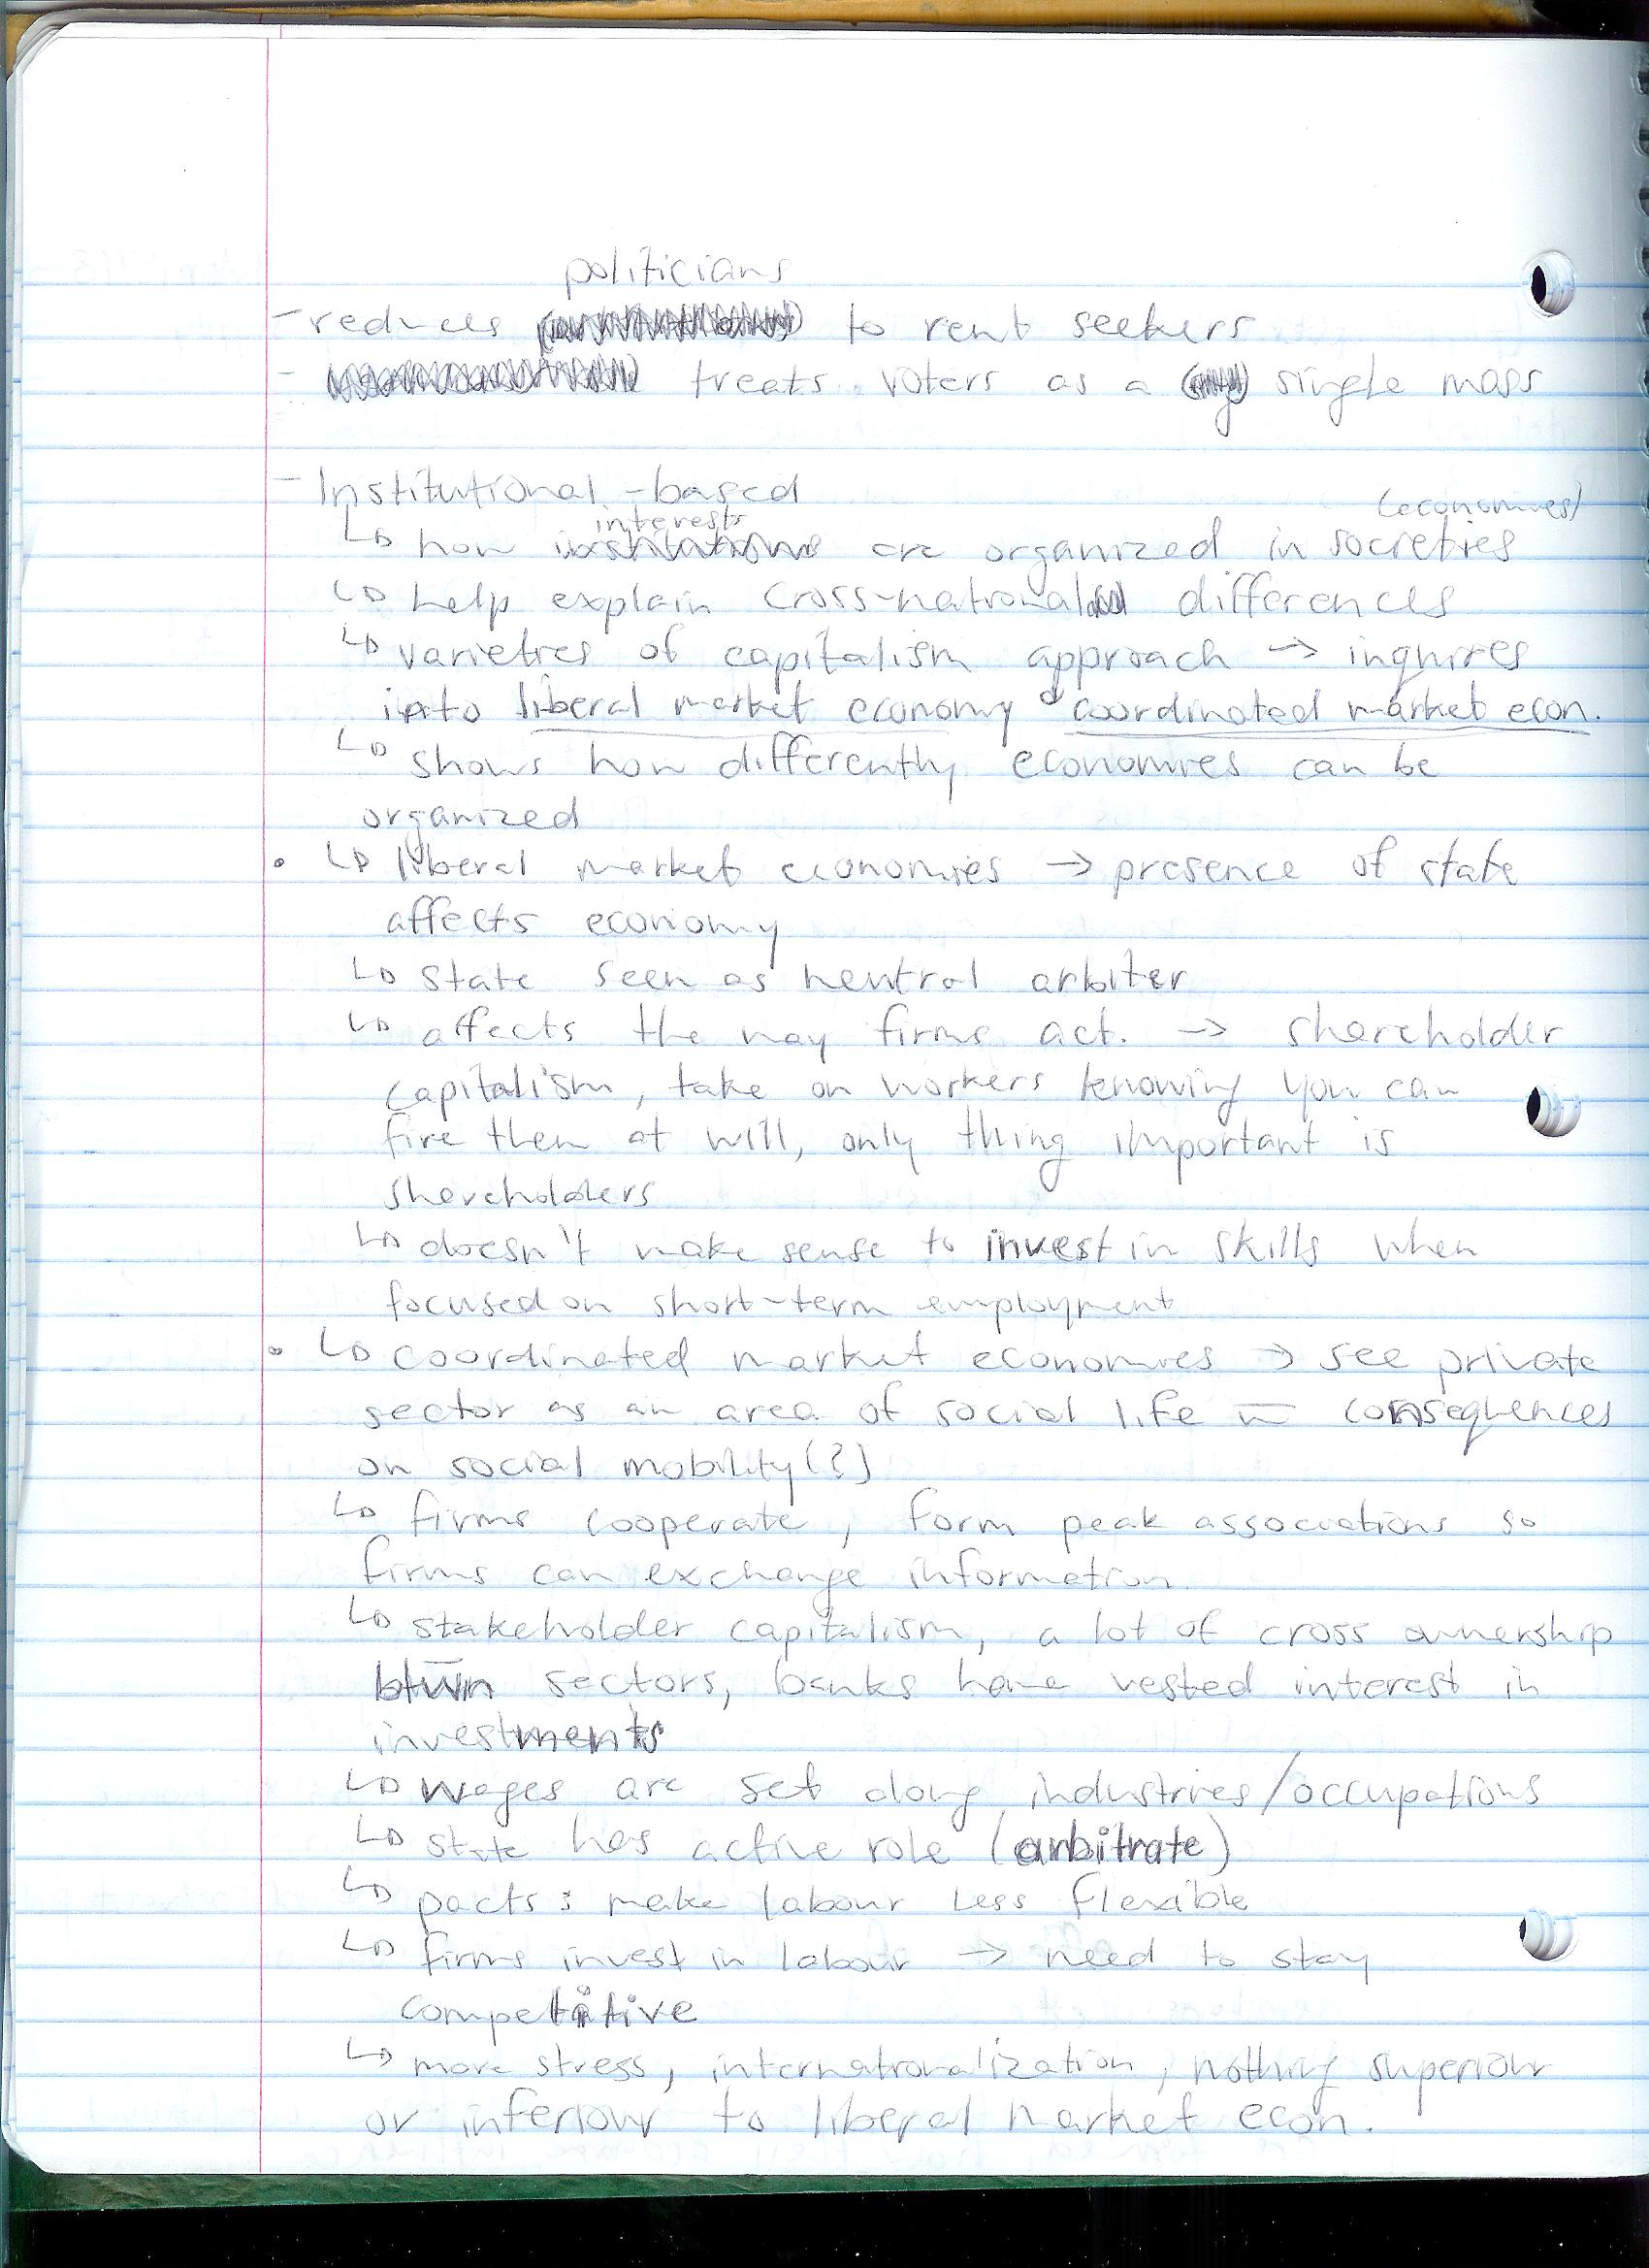 politicians
- reduces to rent seekers
- treats voters as a single mass
- Institutional-based
(economies)
interests
↳ how are organized in societies
↳ help explain cross-national differences
↳ varieties of capitalism approach → inquires
into liberal market economy & coordinated market econ.
↳ shows how differently economies can be
organized
• ↳ liberal market economies → presence of state
affects economy
↳ state seen as neutral arbiter
↳ affects the way firms act. → shareholder
capitalism, take on workers knowing you can
fire them at will, only thing important is
shareholders
↳ doesn't make sense to invest in skills when
focused on short-term employment
• ↳ coordinated market economies → see private
sector as an area of social life consequences
on social mobility (?)
↳ firms cooperate, form peak associations so
firms can exchange information.
↳ stakeholder capitalism, a lot of cross ownership
btwn sectors, banks have vested interest in
investments
↳ wages are set along industries/occupations
↳ state has active role (arbitrate)
↳ pacts: make labour less flexible
↳ firms invest in labour → need to stay
competitive
↳ more stress, internationalization, nothing superiour
or inferiour to liberal market econ.